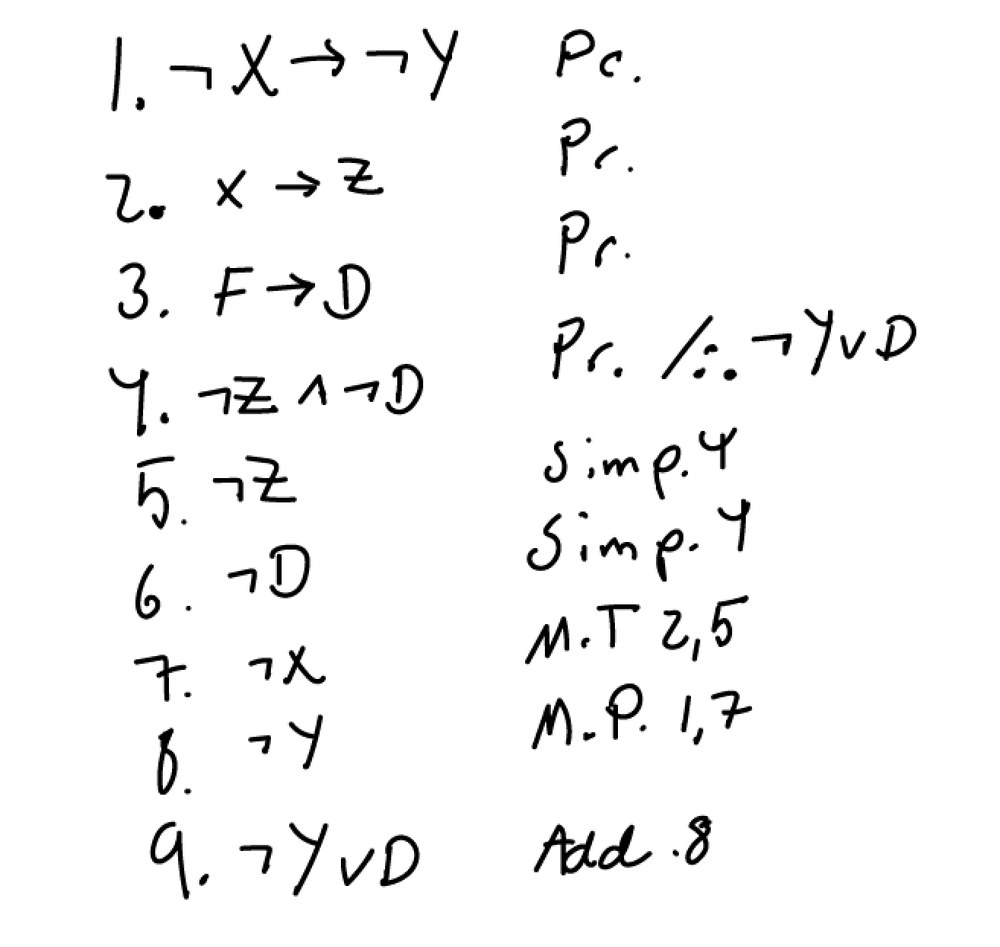 1. ¬X→¬Y Pr.
2. X→Z Pr.
3. F→D Pr.
4. ¬Z∧¬D Pr. /∴ ¬Y∨D
5. ¬Z Simp. 4
6. ¬D Simp. 4
7. ¬X M.T 2,5
8. ¬Y M.P. 1,7
9. ¬Y∨D Add .8